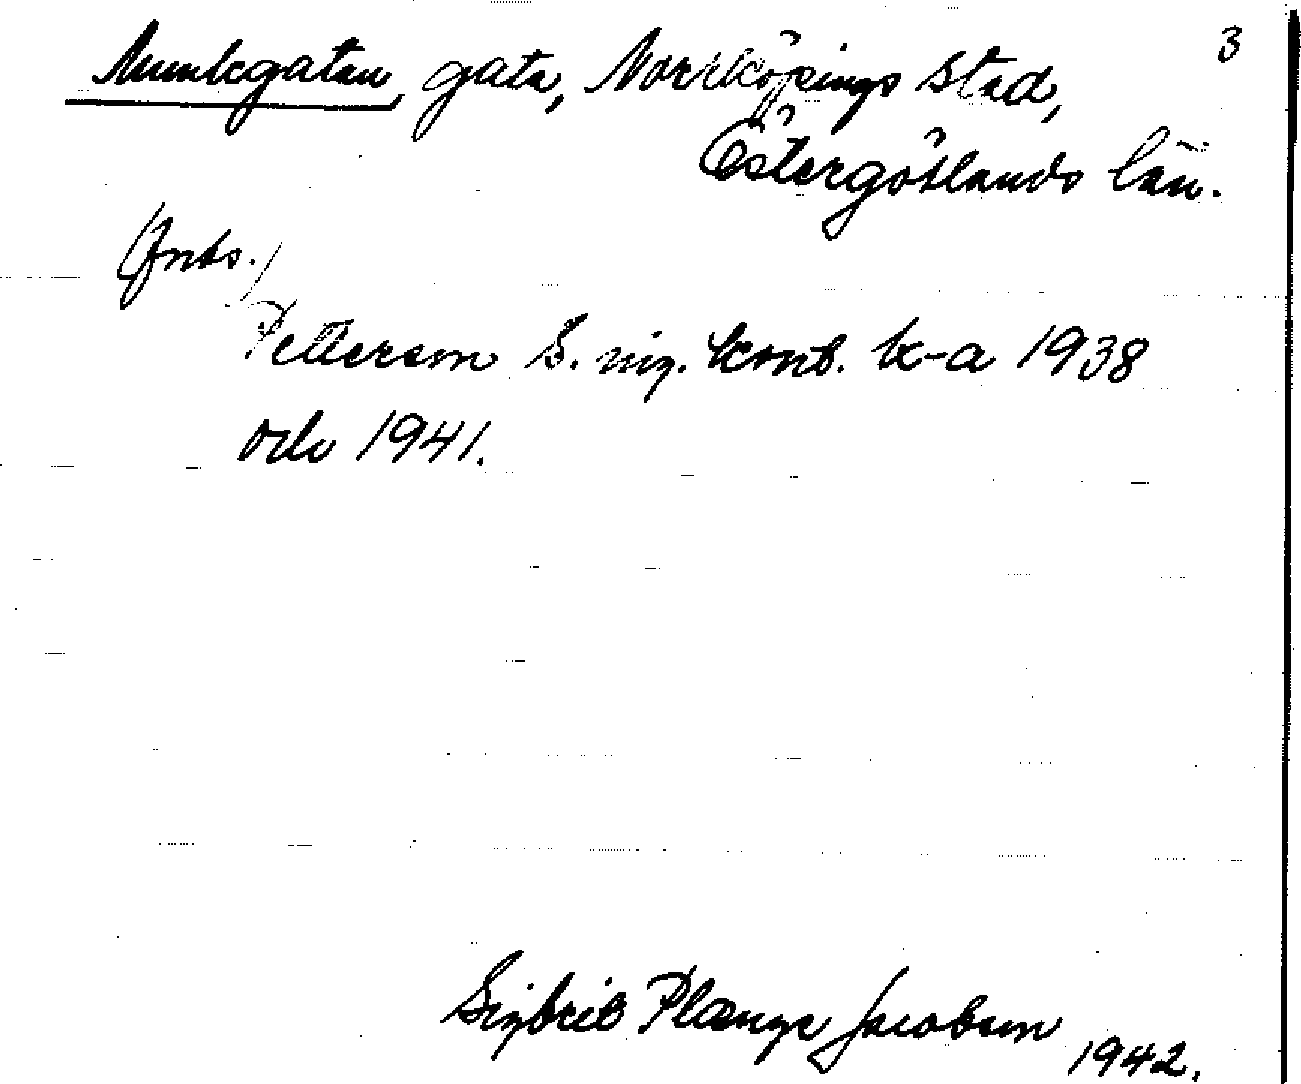 3
Munkgatan, gata, Norrköpings stad,
Östergötlands län.
(fnts.)
Petterson S. ing. komb. k-a 1938
och 1941.
Sigbrit Plænge Jacobson 1942.